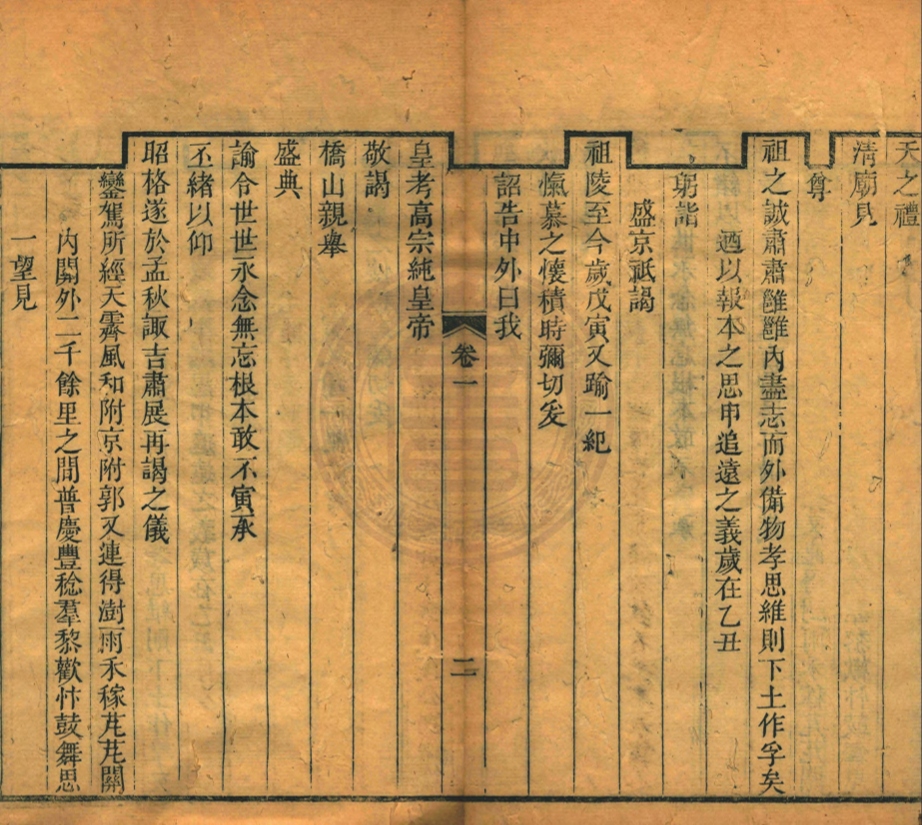 天之禮
清廟見
尊
祖之誠肅肅雝雝內盡志而外備物孝思維則下土作孚矣
迺以報本之思申追遠之義歲在乙丑
躬詣
盛京祇謁
祖陵至今歲戊寅又踰一紀
愾慕之懷積時彌切爰
詔告中外曰我
卷一
二
皇考高宗純皇帝
敬謁
橋山親舉
盛典
諭令世世永念無忘根本敢不寅承
丕緒以仰
昭格遂於孟秋諏吉肅展再謁之儀
鑾駕所經天霽風和附京附郭又連得澍雨禾稼芃芃關
內關外二千餘里之間普慶豐稔羣黎歡忭鼓舞思
一望見